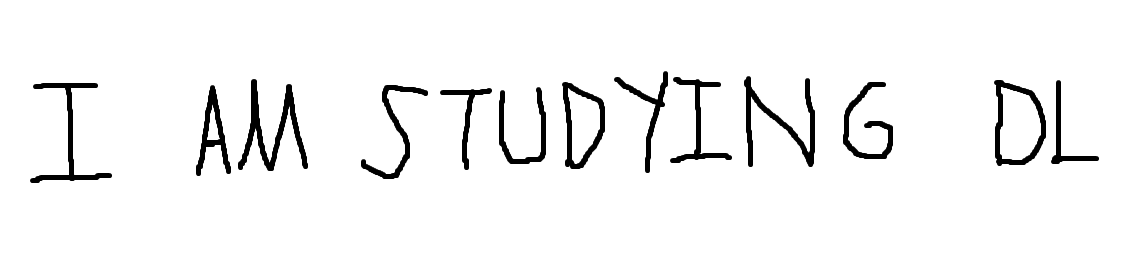 I AM STUDYING DL